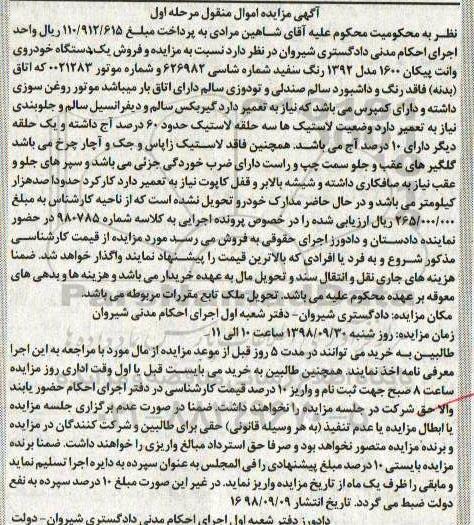 آگهی مزایده اموال منقول مرحله اول
نظر به محکومیت محکوم علیه آقای شاهین مرادی به پرداخت مبلغ ۱۱۰/۹۱۲/۶۱۵ ریال واحد
اجرای احکام مدنی دادگستری شیروان در نظر دارد نسبت به مزایده و فروش یکدستگاه خودروی
وانت پیکان ۱۶۰۰ مدل ۱۳۹۲ رنگ سفید شماره شاسی ۶۲۶۹۸۲ و شماره موتور ۰۰۲۱۲۸۳ که اتاق
(بدنه) فاقد رنگ و داشبورد سالم صندلی و تودوزی سالم دارای اتاق بار میباشد موتور روغن سوزی
داشته و دارای کمپرس می باشد که نیاز به تعمیر دارد گیربکس سالم و دیفرانسیل سالم و جلوبندی
نیاز به تعمیر دارد وضعیت لاستیک ها سه حلقه لاستیک حدود ۶۰ درصد آج داشته و یک حلقه
دیگر دارای ۱۰ درصد آج می باشد. همچنین فاقد لاستیک زاپاس و جک و آچار چرخ می باشد
گلگیر های عقب و جلو سمت چپ و راست دارای ضرب خوردگی جزئی می باشد و سپر های جلو و
عقب نیاز به صافکاری داشته و شیشه بالابر و قفل کاپوت نیاز به تعمیر دارد کارکرد حدودا صدهزار
کیلومتر می باشد و در حال حاضر مدارک خودرو تحویل نشده است که از ناحیه کارشناس به مبلغ
۲۶۵/۰۰۰/۰۰۰ ریال ارزیابی شده را در خصوص پرونده اجرایی به کلاسه شماره ۹۸۰۷۸۵ در حضور
نماینده دادستان و دادورز اجرای حقوقی به فروش می رسد مورد مزایده از قیمت کارشناسی
مذکور شروع و به فرد یا افرادی که بالاترین قیمت را پیشنهاد نمایند واگذار خواهد شد. ضمنا
هزینه های جاری نقل و انتقال سند و تحویل مال به عهده خریدار می باشد و هزینه ها و بدهی های
معوقه بر عهده محکوم علیه می باشد. تحویل ملک تابع مقررات مربوطه می باشد.
مکان مزایده: دادگستری شیروان- دفتر شعبه اول اجرای احکام مدنی شیروان
زمان مزایده: روز شنبه ۱۳۹۸/۰۹/۳۰ ساعت ۱۰ الی ۱۱
طالبین به خرید می توانند در مدت ۵ روز قبل از موعد مزایده از مال مورد با مراجعه به این اجرا
معرفی نامه اخذ نمایند. همچنین طالبین به خرید می بایست قبل یا اول وقت اداری روز مزایده
ساعت ۸ صبح جهت ثبت نام و واریز ۱۰ درصد قیمت کارشناسی در دفتر اجرای احکام حضور یابند
والا حق شرکت در جلسه مزایده را نخواهند داشت. ضمنا در صورت عدم برگزاری جلسه مزایده
یا ابطال مزایده یا عدم تنفیذ (به هر وسیله قانونی) حقی برای طالبین و شرکت کنندگان در مزایده
و برنده مزایده متصور نخواهد بود و صرفا حق استرداد مبالغ واریزی را خواهند داشت. ضمنا برنده
مزایده بایستی ۱۰ درصد مبلغ پیشنهادی را فی المجلس به عنوان سپرده به دایره اجرا تسلیم نماید
و مابقی را ظرف یک ماه از تاریخ مزایده واریز نماید. در غیر این صورت مبلغ ۱۰ درصد سپرده به نفع
دولت ضبط می گردد. تاریخ انتشار ۹۸/۰۹/۰۹ ۱۶
دادورز دفتر شعبه اول اجرای احکام مدنی دادگستری شیروان- دولت